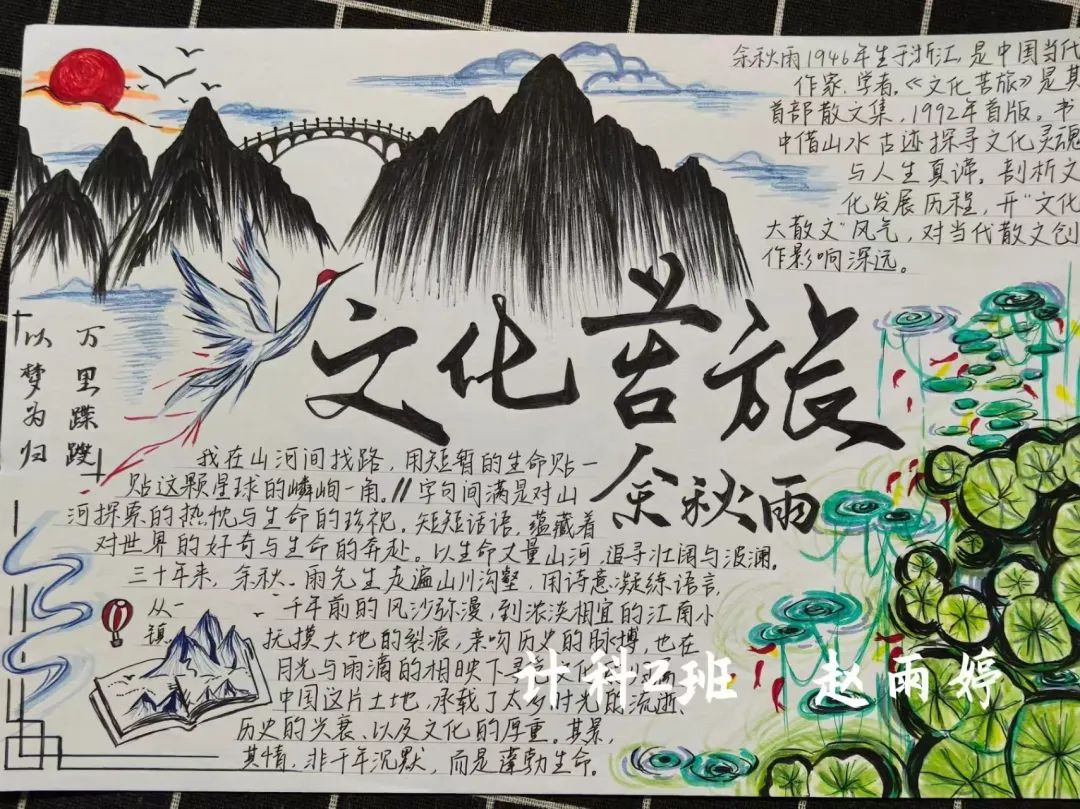 余秋雨1946年生于浙江,是中国当代
作家、学者。《文化苦旅》是其
首部散文集,1992年首版。书
中借山水古迹探寻文化灵魂
与人生真谛,剖析文
化发展历程,开“文化
大散文”风气,对当代散文创
作影响深远。
文化苦旅
余秋雨
「万里蹀躞
以梦为归」
我在山河间找路,用短暂的生命贴一
贴这颗星球的嶙峋一角。//字句间满是对山
河探索的热忱与生命的珍视。短短话语,蕴藏着
对世界的好奇与生命的奔赴。以生命丈量山河,追寻壮阔与波澜。
三十年来,余秋雨先生走遍山川沟壑,用诗意凝练语言,
从一千年前的风沙弥漫,到浓淡相宜的江南小
镇,抚摸大地的裂痕,亲吻历史的脉搏,也在
月光与雨滴的相映下
中国这片土地,承载了太多时光的流逝、
历史的兴衰、以及文化的厚重。其景,
其情,非千年沉默,而是蓬勃生命。
计科2班 赵雨婷